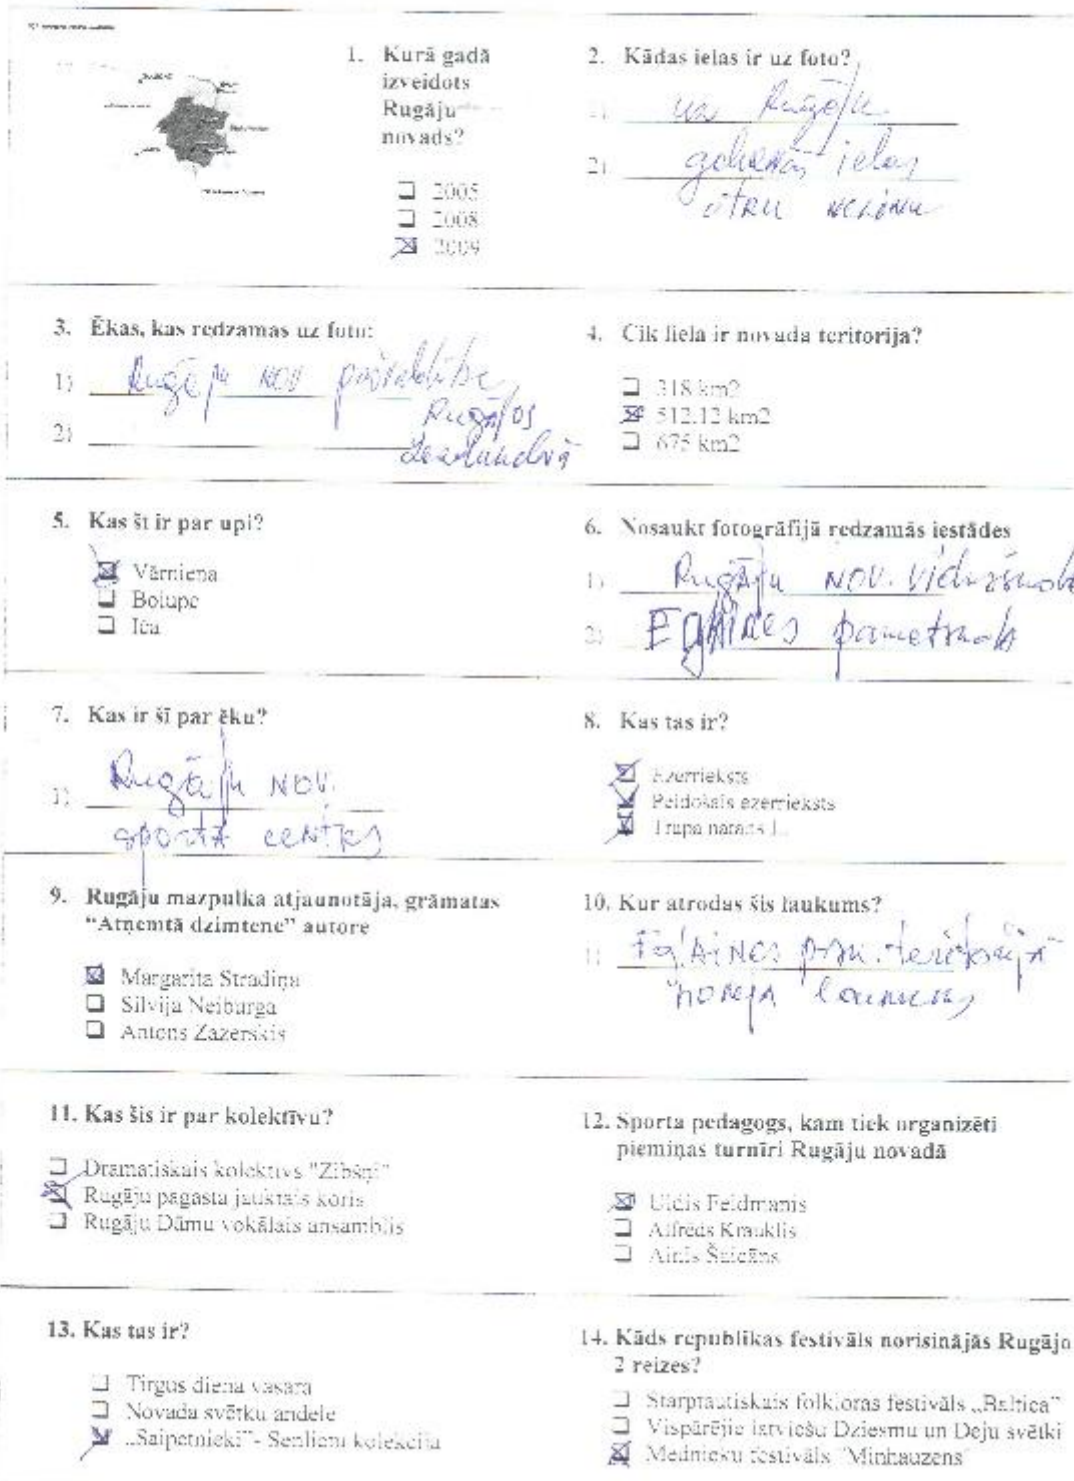 1. Kurā gadā
izveidots
Rugāju
novads?
2005
2008
2009
2. Kādas ielas ir uz foto?
1) uz Rugāju
2) galvenās ielas
otru nezinu
3. Ēkas, kas redzamas uz foto:
1) Rugāju nov pašvaldība
Rugājos
2)
4. Cik liela ir novada teritorija?
318 km2
512.12 km2
675 km2
5. Kas šī ir par upi?
Vārniena
Bolupe
Iča
6. Nosaukt fotogrāfijā redzamās iestādes
1) Rugāju NOV. vidusskola
2) Eglaines pamatskola
7. Kas ir šī par ēku?
1) Rugāju NOV.
sporta centrs
8. Kas tas ir?
Ezerrieksts
Peldošais ezerrieksts
Trapa natans L.
9. Rugāju mazpulka atjaunotāja, grāmatas
“Atņemtā dzimtene” autore
Margarita Stradiņa
Silvija Neiburga
Antons Zazerskis
10. Kur atrodas šis laukums?
1) Eglaines pam. teritorijā
laukums
11. Kas šis ir par kolektīvu?
Dramatiskais kolektīvs "Zibšņi"
Rugāju pagasta jauktais koris
Rugāju Dāmu vokālais ansamblis
12. Sporta pedagogs, kam tiek organizēti
piemiņas turnīri Rugāju novadā
Uldis Feldmanis
Alfreds Krauklis
Ainis Šaicāns
13. Kas tas ir?
Tirgus diena vasarā
Novada svētku andele
„Saipetnieki”- Senlietu kolekcija
14. Kāds republikas festivāls norisinājās Rugājo
2 reizes?
Starptautiskais folkloras festivāls „Baltica”
Vispārējie latviešu Dziesmu un Deju svētki
Mednieku festivāls "Minhauzens"